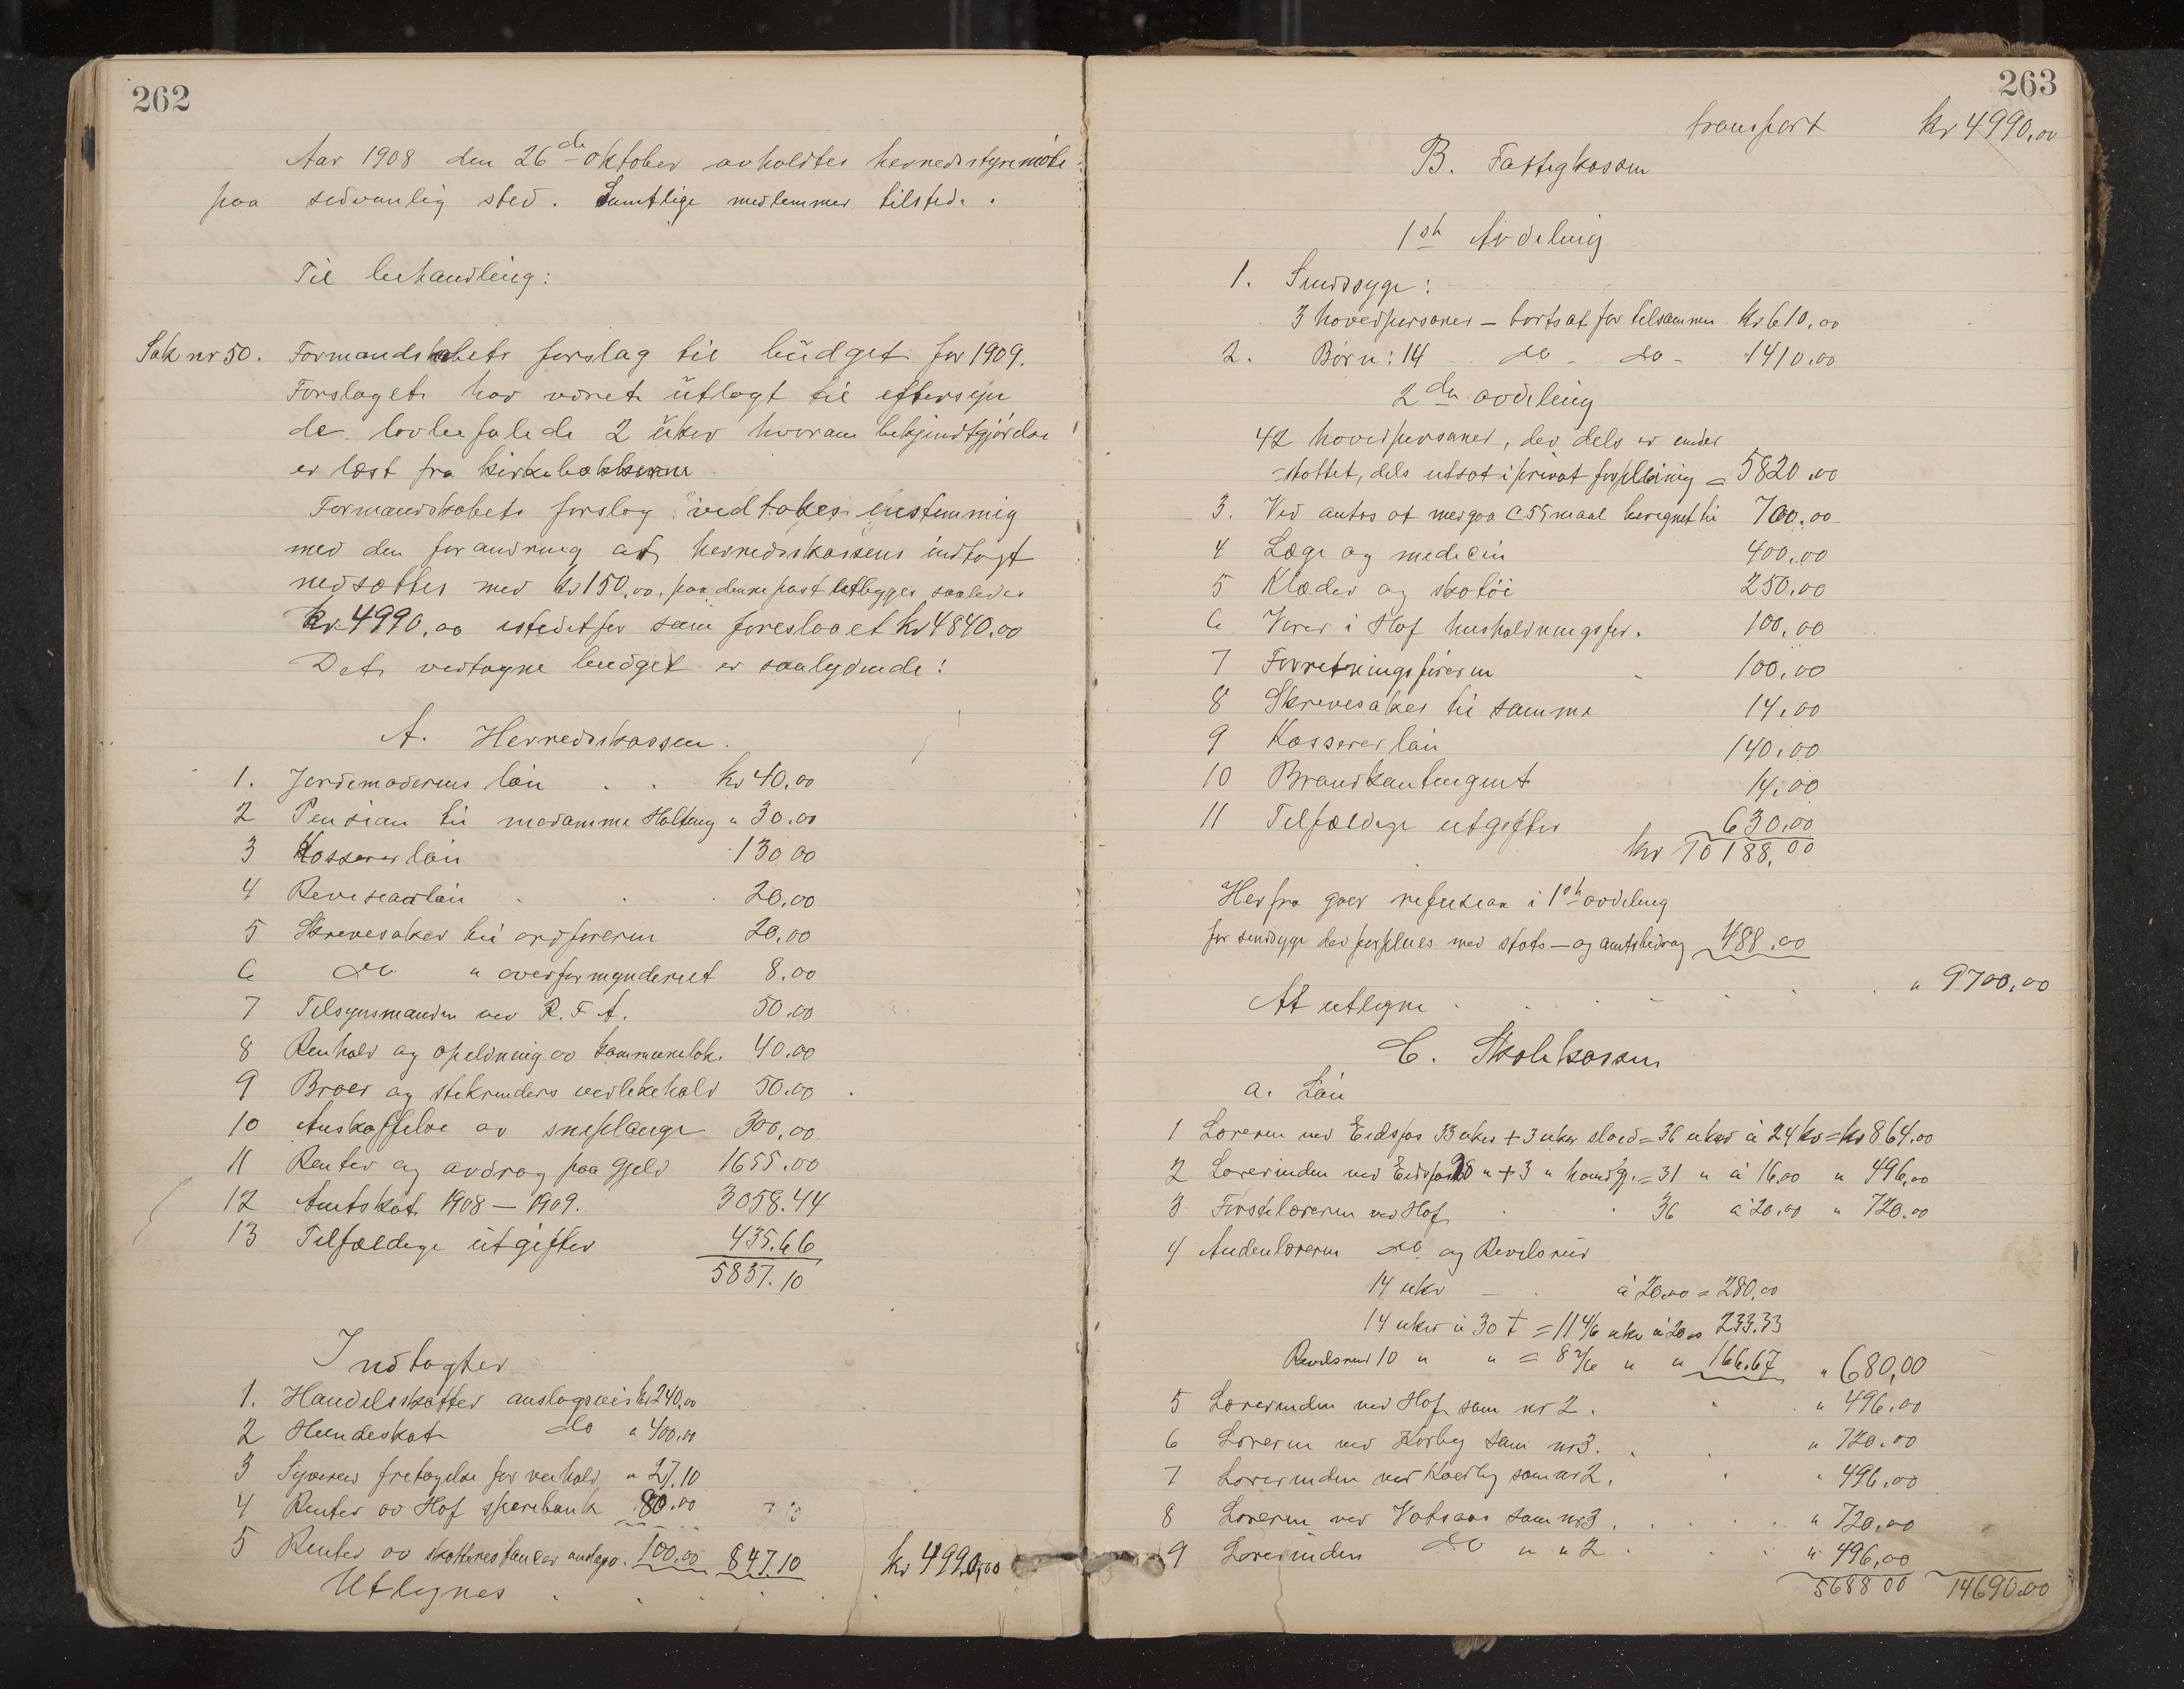 262
Aar 1908 den 26de oktober avholdtes herredsstyremöte
paa sedvanlig sted. Samtlige medlemmer tilstede.
Til behandling:
Sak nr 50. Formandskabets forslag til budget for 1909.
Forslaget har været utlagt til eftersyn
de lovbefalede 2 uker hvorom bekjendtgjørelse
er læst fra kirkebakkerne
Formandskabets forslag vedtokes enstemmig
med den forandring at herredskassens indtægt
nedsættes med kr 150,00, paa denne post utlegges saaledes
kr 4990,00 istedetfor som foreslaaet kr 4840.00
Det vedtagne budget er saalydende:
A. Herredskassen.
1. Jordemoderens lön . . kr 40.00
2 Pension til madamme Holtung " 30.00
3 Kassererlön 130.00
4 Revisorlön . . . 20.00
5 Skrivesaker til ordføreren 20.00
6 do " overformynderiet 8.00
7 Tilsynsmanden ved R. F. A. 50.00
8 Renhold og opeldning av kommunelok. 40.00
9 Broer og stikrenders vedlikehold 50.00 .
10 Anskaffelse av sneplauge 300,00
11 Renter og avdrag paa gjeld 1655.00
12 Amtskat 1908 — 1909. 3058.44
13 Tilfældige utgifter 435.66
5837.10
Indtægter
1. Handelsskatter anslagsvis kr 240,00
2 Hundeskat do " 400,00
3 for veihold " 27.10
4 Renter av Hof sparebank 80.00
5 Renter av skatterestancer anslagsv. 100.00 847.10
Utlignes . . . . . kr 4990,00
263
transport kr 4990,00
B. Fattigkassen
1ste Avdeling
1. Sindssyge:
3 hovedpersoner — bortsat for tilsammen kr 610,00
2. Børn: 14 do - do - 1410.00
2den avdeling
42 hovedpersoner, der dels er under
-støttet, dels utsat i privat forpleining = 5820.00
3. Ved antas at medgaa C 55 maal beregnet til 700.00
4 Læge og medicin 400,00
5 Klæder og skotöi 250.00
6 Varer i Hof husholdningsfor. 100,00
7 Forretningsföreren - 100,00
8 Skrivesaker til samme 14.00
9 Kassererlön 140.00
10 Brandkontingent 14.00
11 Tilfældige utgifter 630,00
kr 10188,00
Herfra gaar refusion i 1ste avdeling
for sindsyge der forpleies med stats- og amtsbidrag 488.00
At utligne . . . - . . " 9700,00
C. Skolekassen
a. Lön
1 Læreren ved Eidsfos 33 uker + 3 uker sløid = 36 uker à 24 kr = kr 864.00
2 Lærerinden ved Eidsfos 28 " + 3 " handgj. = 31 " à 16,00 " 496,00
3 Förstelæreren ved Hof . . 36 à 20.00 " 720.00
4 Andenlæreren do og Revelsrud
14 uker — . à 20,00 = 280,00
14 uker à 30 t = 11 4/6 uke à 20.00 233.33
Revelsrud 10 " " = 8 2/6 " " 166.67 " 680,00
5 Lærerinden ved Hof som nr 2. . . " 496.00
6 Læreren ved Korby som nr 3. . . " 720.00
7 Lærerinden ved Korby som nr 2. . " 496.00
8 Læreren ved Vatsaas som nr 3 . . . . . " 720,00
9 Lærerinden do " " 2 . . . " 496,00
5688 00 14690.00